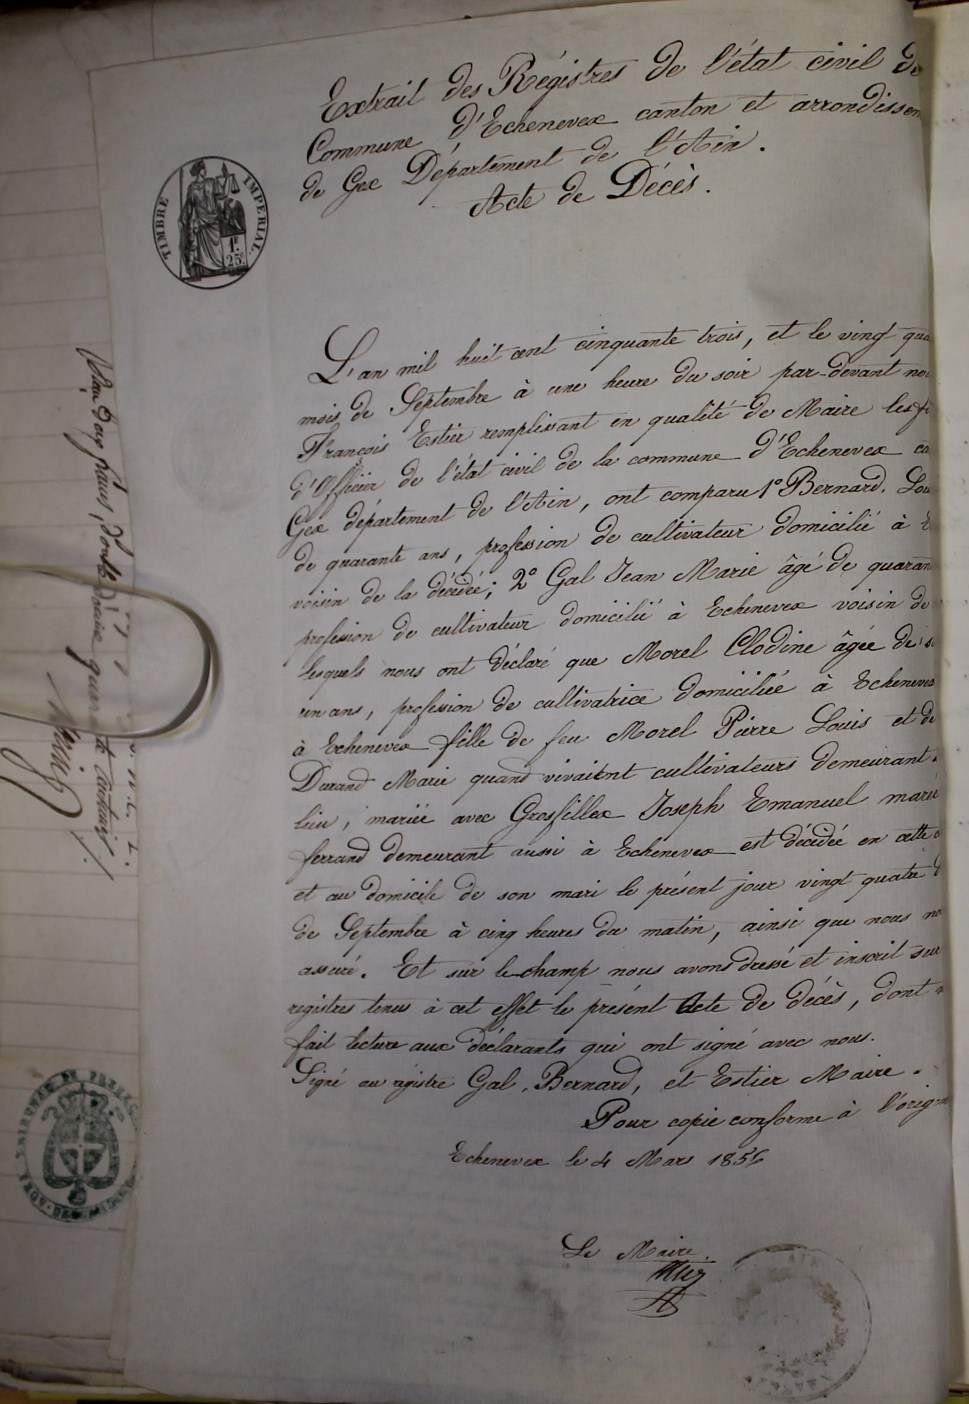 Extrait des Régistres de l'état civil de
Commune d'Echenevex canton et arrondissem
de Gex Département de l'Ain.
Acte de Décès.
TIMBRE IMPERIAL
1F.
25c
L'an mil huit cent cinquante trois, et le vingt qua
mois de Septembre à une heure du soir par-devant no
François Estier remplissant en qualité de Maire les f
d'Officier de l'état civil de la commune d'Echenevex ca
Gex département de l'Ain, ont comparu 1° Bernard Lou
de quarante ans, profession de cultivateur domicilié à E
voisin de la décédée; 2° Gal Jean Marie âgé de quaran
profession de cultivateur domicilié à Echenevex voisin de
lesquels nous ont déclaré que Morel Clodine âgée de s
un ans, profession de cultivatrice domiciliée à Echenevex
à Echenevex fille de feu Morel Pierre Louis et de
Durand Marie quand vivaient cultivateurs demeurant
lieu, mariée avec Grosfillex Joseph Emanuel marié
ferrand demeurant aussi à Echenevex est décédée en cette
et au domicile de son mari le présent jour vingt quatre
de Septembre à cinq heures du matin, ainsi que nous no
assuré. Et sur le champ nous avons dressé et inscrit sur
registres tenus à cet effet le présent Acte de décès, dont
fait lecture aux déclarants qui ont signé avec nous.
Signé au régistre Gal, Bernard, et Estier Maire.
Pour copie conforme à l'orig
Echenevex le 4 Mars 1856
Le Maire.